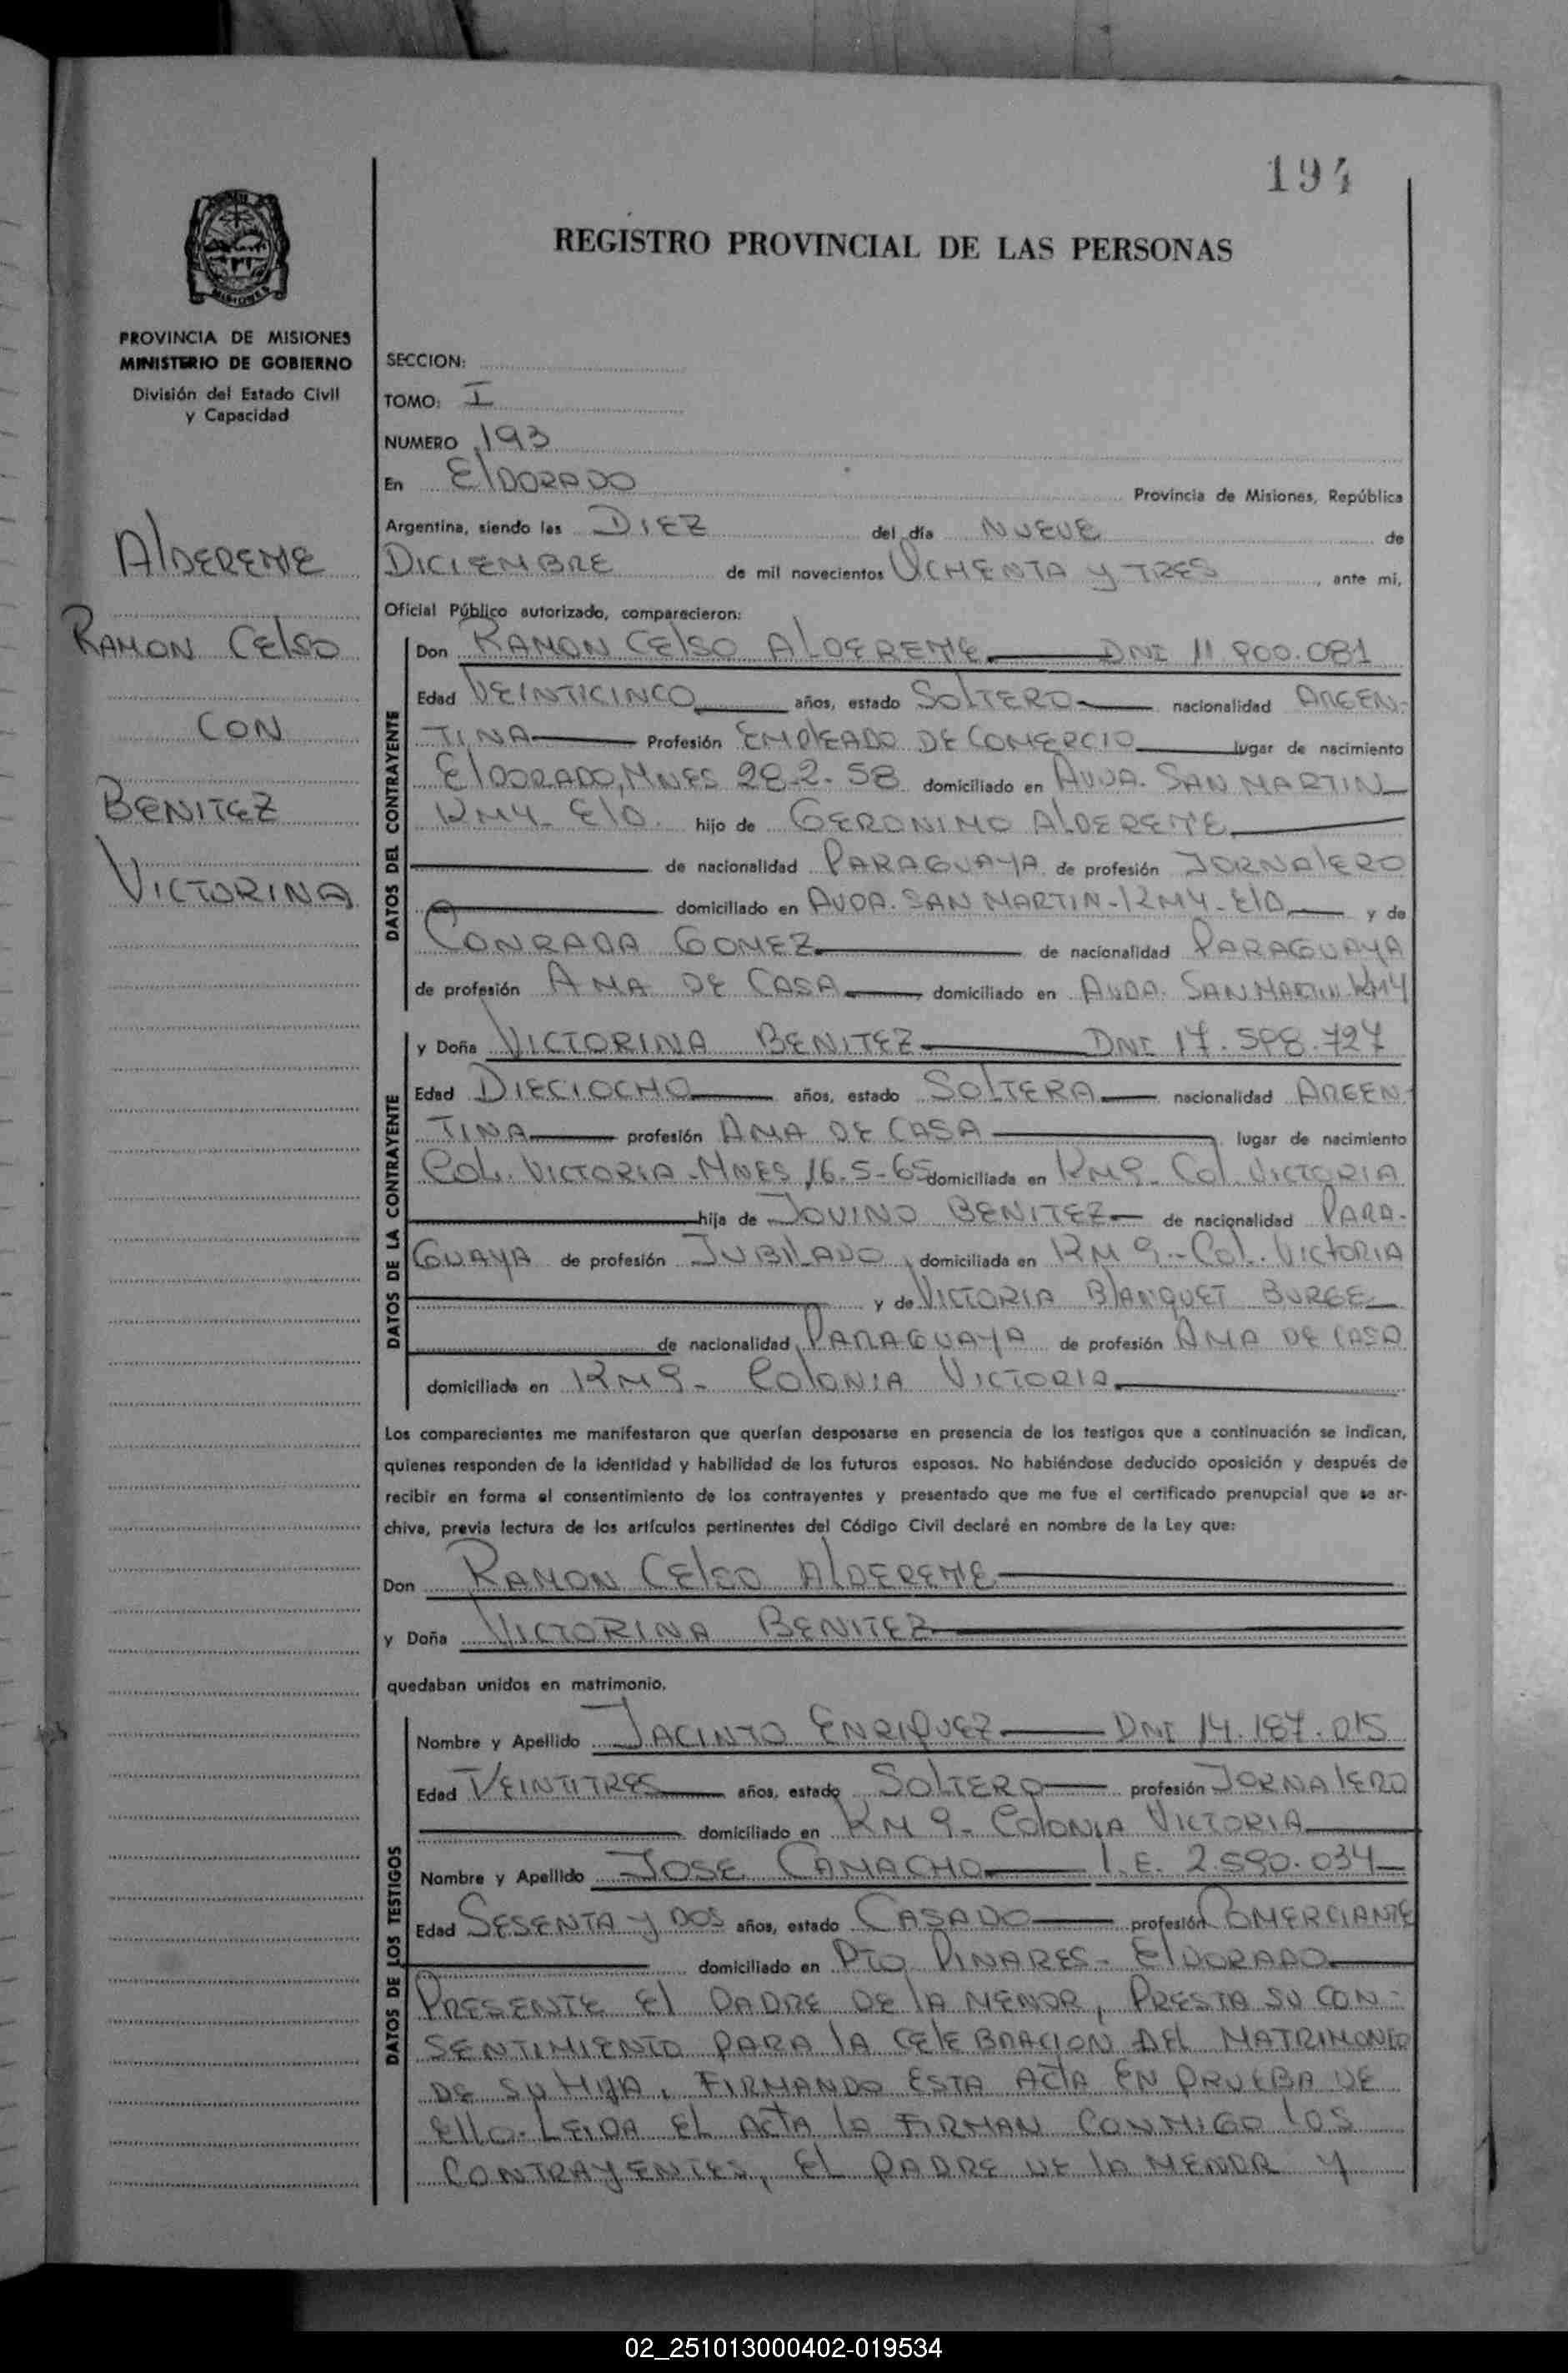 194
REGISTRO PROVINCIAL DE LAS PERSONAS
MISIONES
PROVINCIA DE MISIONES
MINISTERIO DE GOBIERNO
División del Estado Civil
y Capacidad
ALDERETE
RAMON CELSO
CON
BENITEZ
VICTORINA
SECCION:
TOMO: I
NUMERO 193
En ELDORADO Provincia de Misiones, República
Argentina, siendo las DIEZ del día NUEVE de
DICIEMBRE de mil novecientos OCHENTA Y TRES, ante mi,
Oficial Público autorizado, comparecieron:
DATOS DEL CONTRAYENTE
Don RAMON CELSO ALDERETE DNI 11.900.081
Edad VEINTICINCO años, estado SOLTERO nacionalidad ARGEN-
TINA Profesión EMPLEADO DE COMERCIO lugar de nacimiento
ELDORADO, MNES 28-2-58 domiciliado en AVDA. SAN MARTIN
KM4- E/D. hijo de GERONIMO ALDERETE
de nacionalidad PARAGUAYA de profesión JORNALERO
domiciliado en AVDA. SAN MARTIN-KM4-E/D y de
CONRADA GOMEZ de nacionalidad PARAGUAYA
de profesión AMA DE CASA domiciliado en AVDA. SAN MARTIN KM4
DATOS DE LA CONTRAYENTE
y Doña VICTORINA BENITEZ DNI 17.598.727
Edad DIECIOCHO años, estado SOLTERA nacionalidad ARGEN-
TINA profesión AMA DE CASA lugar de nacimiento
COL. VICTORIA-MNES 16-5-65 domiciliada en KM9- COL. VICTORIA
hija de JOVINO BENITEZ de nacionalidad PARA-
GUAYA de profesión JUBILADO, domiciliada en KM 9-COL. VICTORIA
y de VICTORIA BLANQUET BURGE
de nacionalidad PARAGUAYA de profesión AMA DE CASA
domiciliada en KM9- COLONIA VICTORIA
Los comparecientes me manifestaron que querían desposarse en presencia de los testigos que a continuación se indican,
quienes responden de la identidad y habilidad de los futuros esposos. No habiéndose deducido oposición y después de
recibir en forma el consentimiento de los contrayentes y presentado que me fue el certificado prenupcial que se ar-
chiva, previa lectura de los artículos pertinentes del Código Civil declaré en nombre de la Ley que:
Don RAMON CELSO ALDERETE
y Doña VICTORINA BENITEZ
quedaban unidos en matrimonio.
DATOS DE LOS TESTIGOS
Nombre y Apellido JACINTO ENRIQUEZ DNI 14.187.015
Edad VEINTITRES años, estado SOLTERO profesión JORNALERO
domiciliado en KM 9- COLONIA VICTORIA
Nombre y Apellido JOSE CAMACHO L.E. 2.590.034
Edad SESENTA Y DOS años, estado CASADO profesión COMERCIANTE
domiciliado en PTO PINARES- ELDORADO
PRESENTE EL PADRE DE LA MENOR, PRESTA SU CON-
SENTIMIENTO PARA LA CELEBRACION DEL MATRIMONIO
DE SU HIJA, FIRMANDO ESTA ACTA EN PRUEBA DE
ELLO. LEIDA EL ACTA LA FIRMAN CONMIGO LOS
CONTRAYENTES, EL PADRE DE LA MENOR Y
02_251013000402-019534